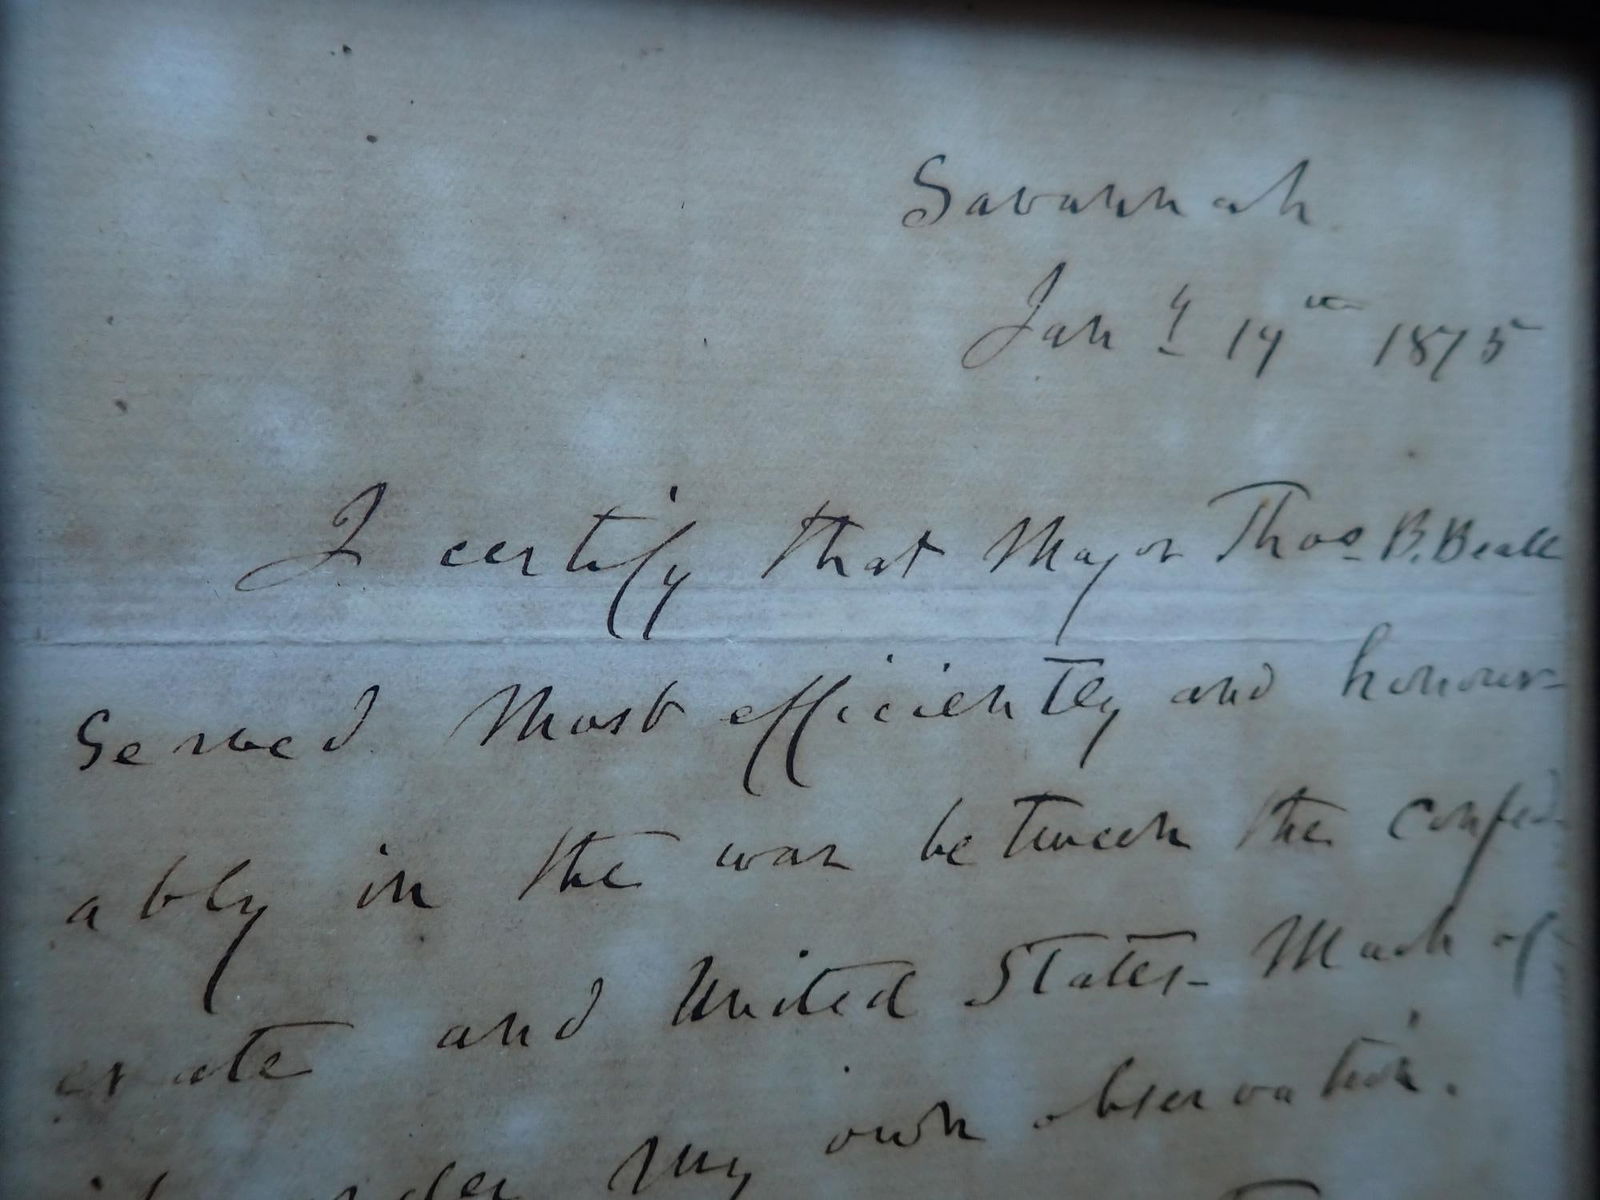 Savannah
Jany 19th 1875
I certify that Major Thos B. Beall
Served Most efficiently and honour-
ably in the war between the confed-
erate and United States - Much of
it under my own observation.